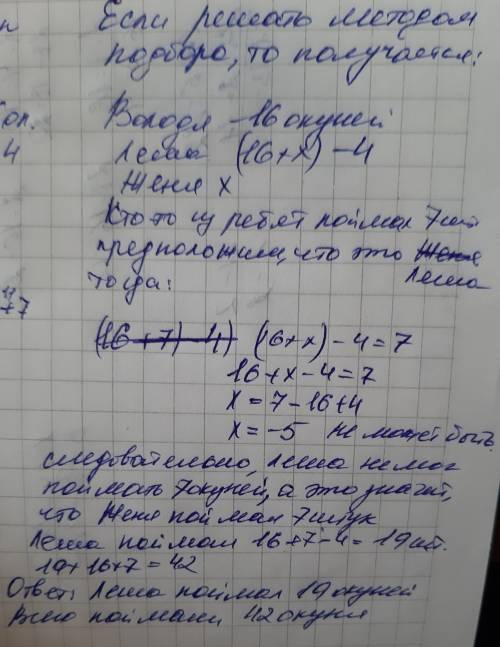 Если решать методом
подбора, то получается:
Володя - 16 окуней
Леша (16+x) - 4
Женя x
Кто то из ребят поймал 7 шт
предположим, что это Женя
Леша
тогда:
(16+7) - 4) (16+x) - 4 = 7
16+x-4=7
x=7-16+4
x=-5 не может быть
следовательно, Леша не мог
поймать 7 окуней, а это значит,
что Женя поймал 7 штук
Леша поймал 16+7-4=19 шт.
19+16+7=42
Ответ: Леша поймал 19 окуней
Всего поймали 42 окуня